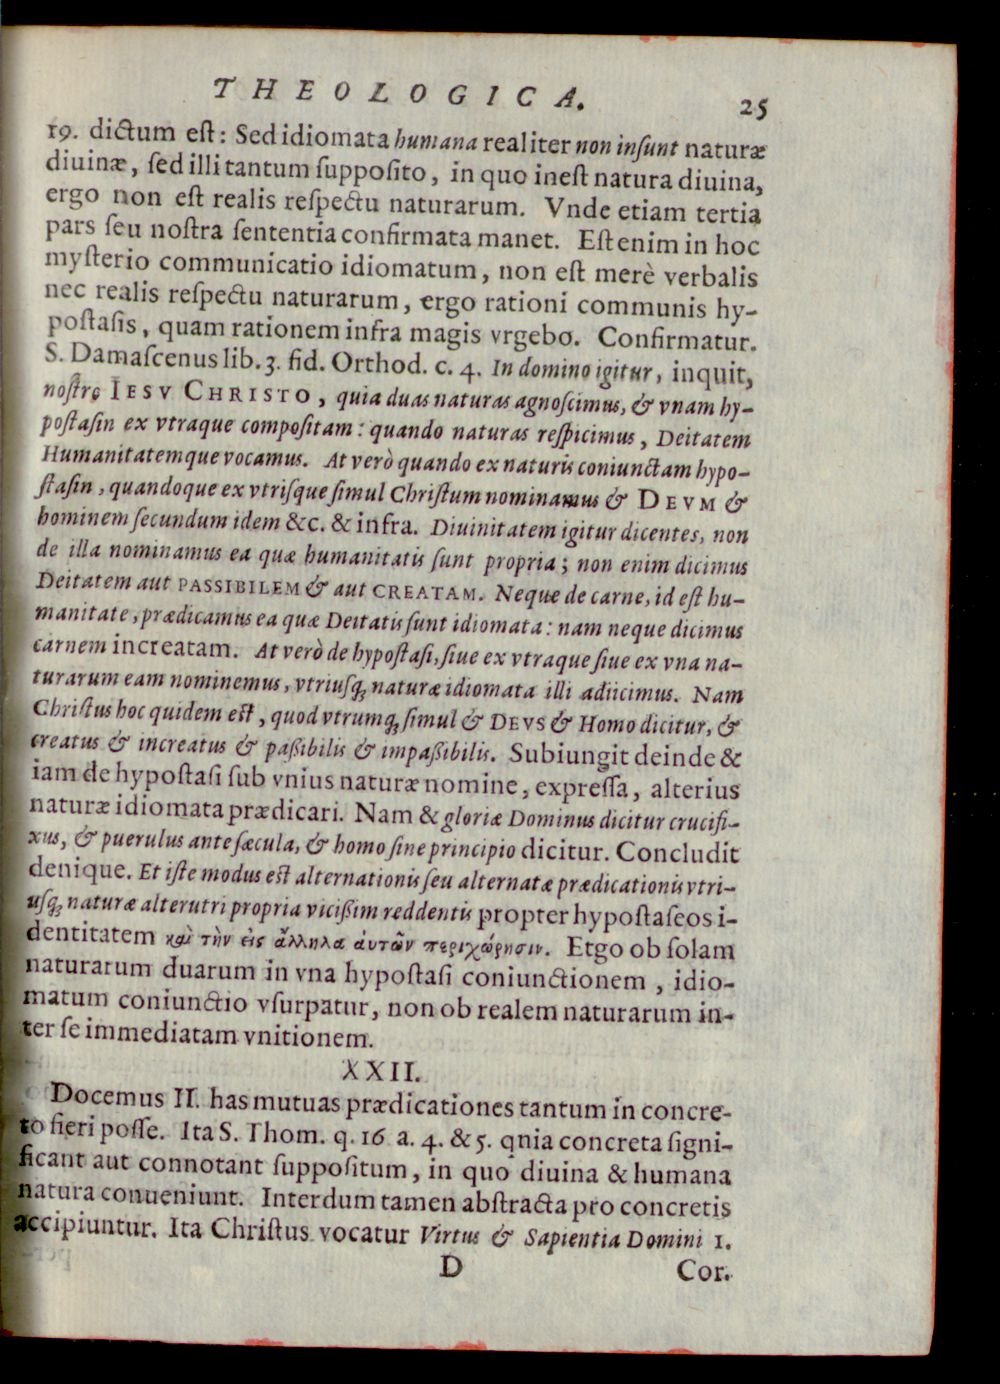 THEOLOGICA. 25
19. dictum eſt: Sed idiomata humana realiter non inſunt naturæ
diuinæ, ſed illi tantum ſuppoſito, in quo ineſt natura diuina,
ergo non eſt realis reſpectu naturarum. Vnde etiam tertia
pars ſeu noſtra ſententia confirmata manet. Eſt enim in hoc
myſterio communicatio idiomatum, non eſt merè verbalis
nec realis reſpectu naturarum, ergo rationi communis hy-
poſtaſis, quam rationem infra magis vrgebo. Confirmatur.
S. Damaſcenus lib. 3. fid. Orthod. c. 4. In domino igitur, inquit,
noſtro IESV CHRISTO, quia duas naturas agnoſcimus, & vnam hy-
poſtaſin ex vtraque compoſitam: quando naturas reſpicimus, Deitatem
Humanitatemque vocamus. At verò quando ex naturis coniunctam hypo-
ſtaſin, quandoque ex vtriſque ſimul Chriſtum nominamus & DEVM &
hominem ſecundum idem &c. & infra. Diuinitatem igitur dicentes, non
de illa nominamus ea quæ humanitatis ſunt propria; non enim dicimus
Deitatem aut PASSIBILEM & aut CREATAM. Neque de carne, id eſt hu-
manitate, prædicamus ea quæ Deitatis ſunt idiomata: nam neque dicimus
carnem increatam. At verò de hypoſtaſi, ſiue ex vtraque ſiue ex vna na-
turarum eam nominemus, vtriuſq; naturæ idiomata illi adiicimus. Nam
Chriſtus hoc quidem eſt, quod vtrumq; ſimul & DEVS & Homo dicitur, &
creatus & increatus & paßibilis & impaßibilis. Subiungit deinde &
iam de hypoſtaſi ſub vnius naturæ nomine, expreſſa, alterius
naturæ idiomata prædicari. Nam & gloriæ Dominus dicitur crucifi-
xus, & puerulus ante ſæcula, & homo ſine principio dicitur. Concludit
denique. Et iſte modus eſt alternationis ſeu alternatæ prædicationis vtri-
uſq; naturæ alterutri propria vicißim reddentis propter hypoſtaſeos i-
dentitatem καὶ τὴν εἰς ἄλληλα ἀυτῶν περιχώρησιν. Etgo ob ſolam
naturarum duarum in vna hypoſtaſi coniunctionem, idio-
matum coniunctio vſurpatur, non ob realem naturarum in-
ter ſe immediatam vnitionem.
XXII.
Docemus II. has mutuas prædicationes tantum in concre-
to fieri poſſe. Ita S. Thom. q. 16 a. 4. & 5. qnia concreta ſigni-
ficant aut connotant ſuppoſitum, in quo diuina & humana
natura conueniunt. Interdum tamen abſtracta pro concretis
accipiuntur. Ita Chriſtus vocatur Virtus & Sapientia Domini 1.
D Cor.